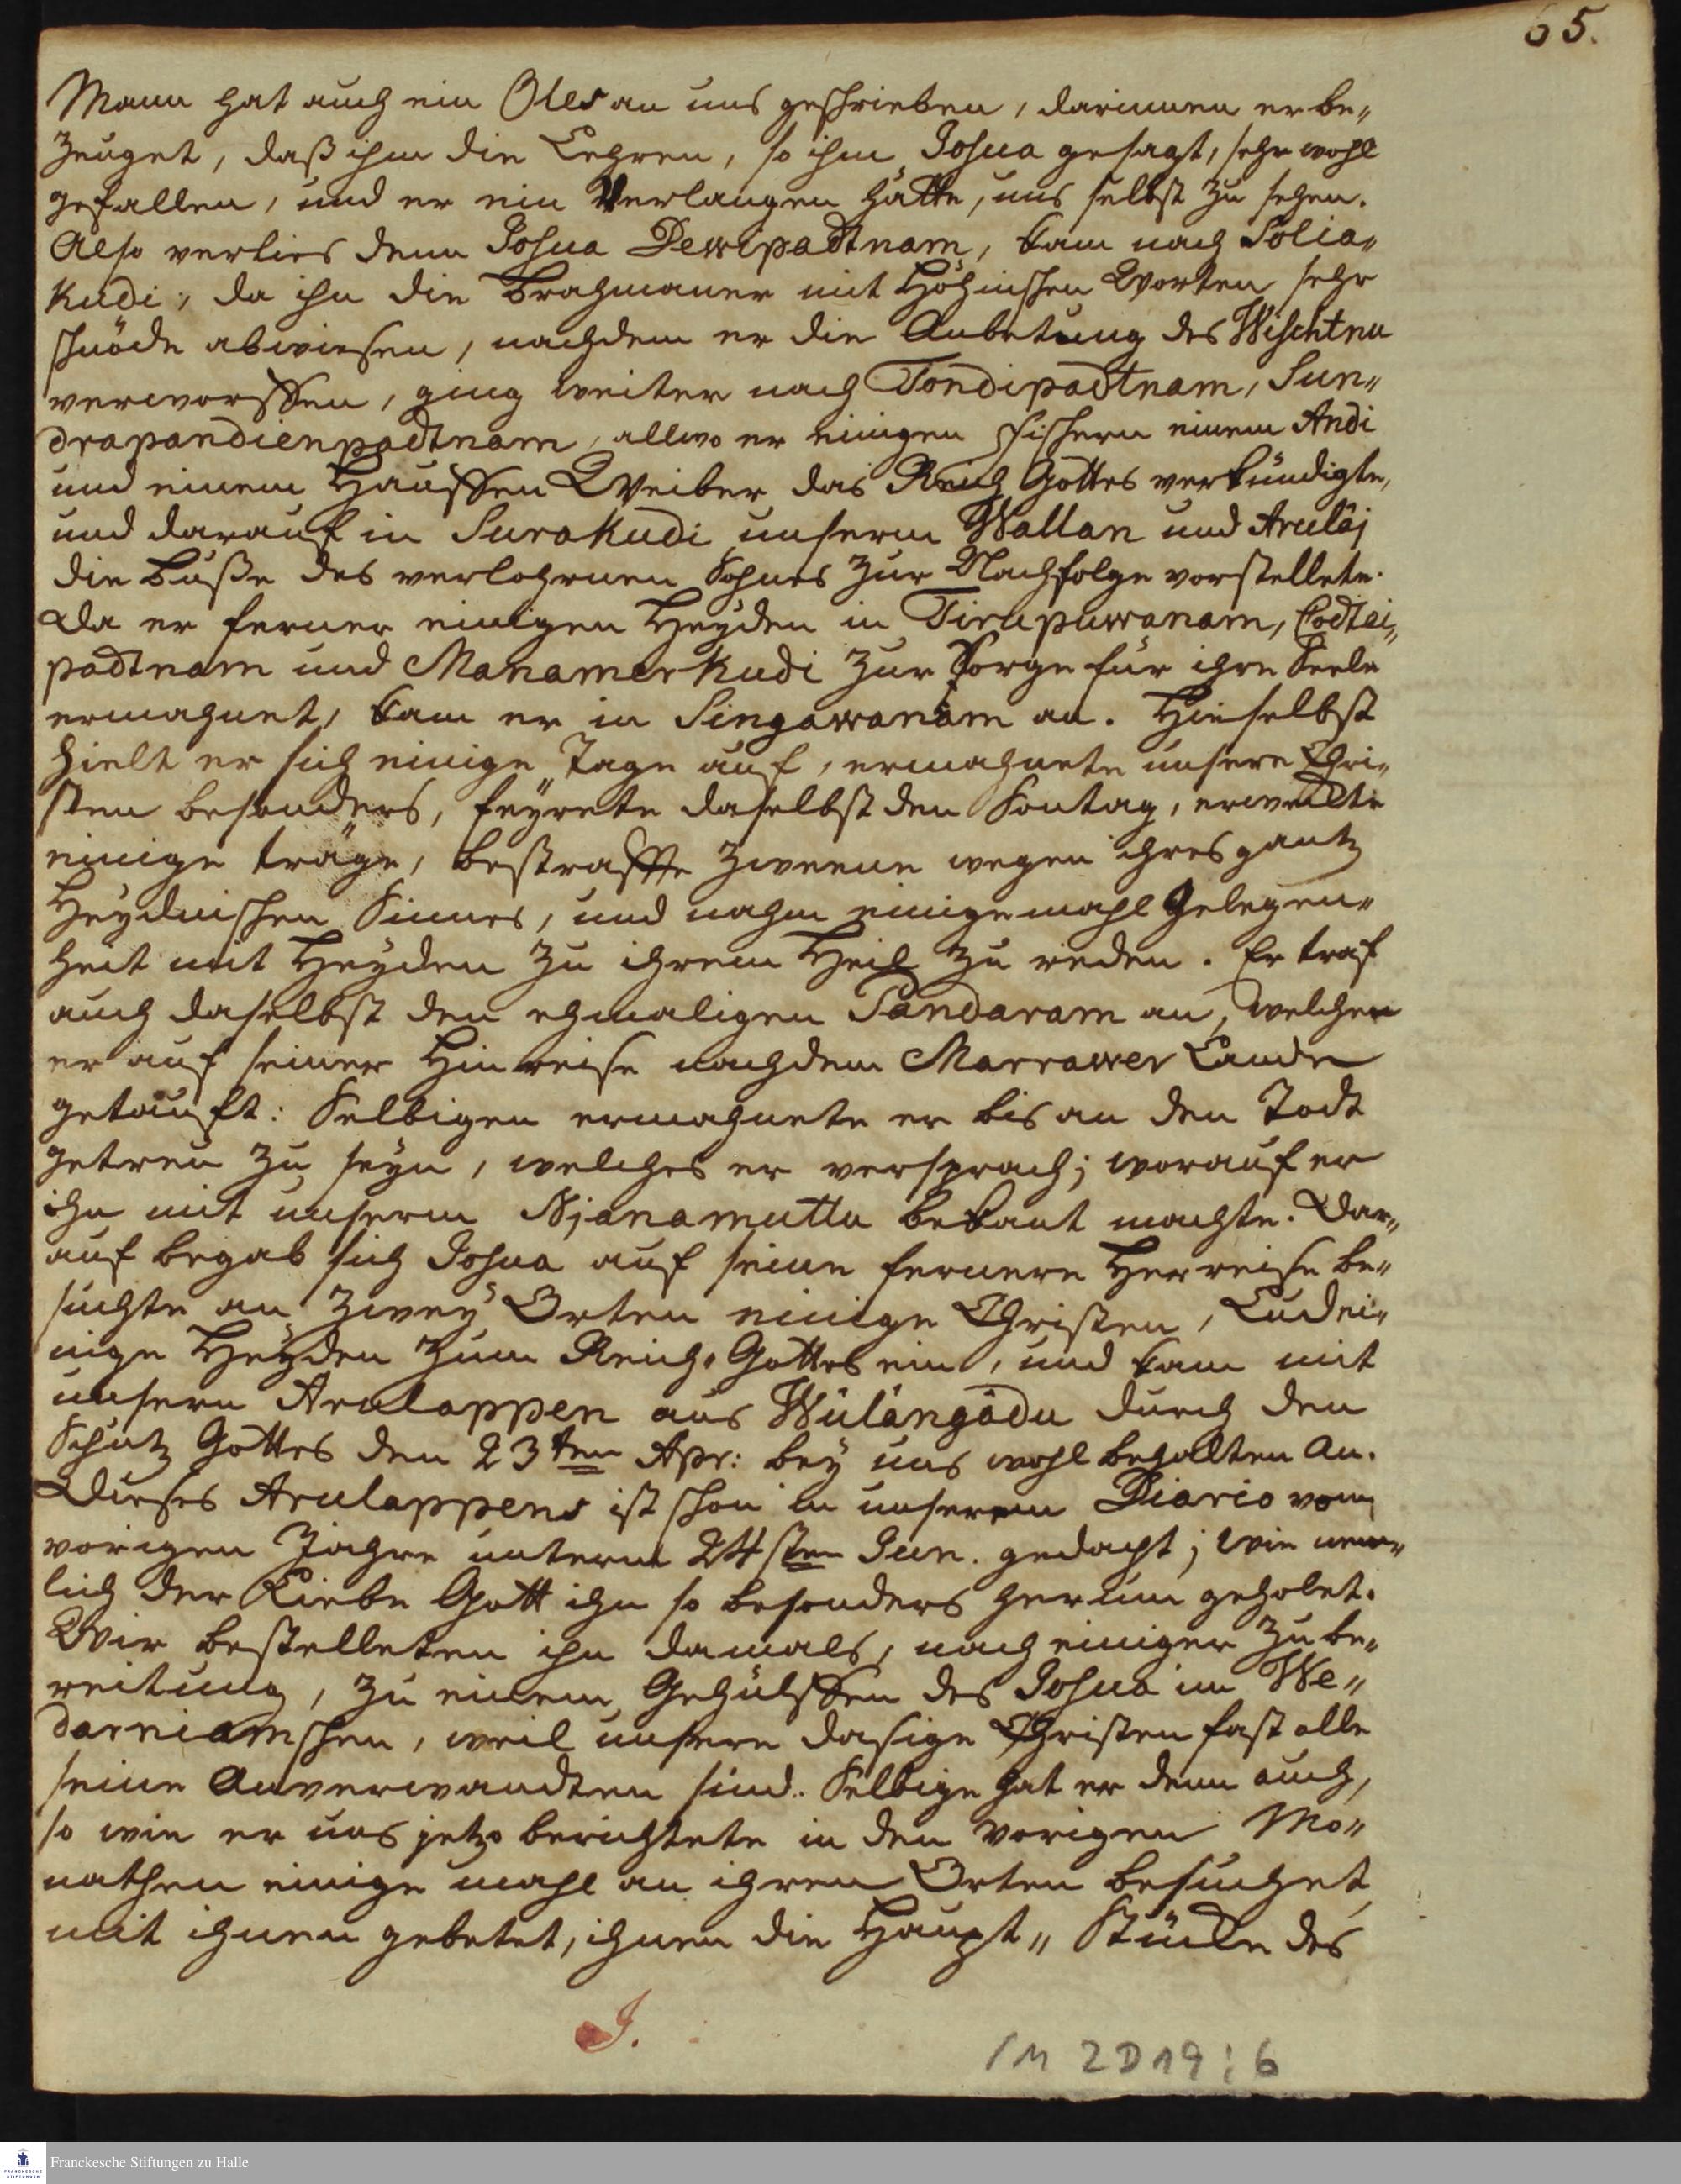 65.
Mann hat auch ein Oles an uns geschrieben, darinnen er be„
zeuget, daß ihm die Lehren, so ihm Josua gesagt, sehr wohl
gefallen, und er ein Verlangen hätte, uns selbst zu sehen.
Also verlies denn Josua Dewipadtnam, kam nach Solia„
kudi, da ihn die Brahmaner mit höhnischen Worten sehr
schnöde abwiesen, nachdem er die Anbetung des Wischtnu
verworffen, ging weiter nach Tondipadtnam, Sun„
drapandienpadtnam, allwo er einigen Fischern einem Andi
und einem Hauffen Weiber das Reich Gottes verkündigte,
und darauf in Surakudi unserm Wallan und Arulaj
die Buße des verlohrnen Sohnes zur Nachfolge vorstellete.
Da er ferner einigen Heyden in Tirupuwanam, Codtei„
padtnam und Manamerkudi zur Sorge für ihre Seele
ermahnet, kam er in Singawanam an. Hieselbst
hielt er sich einige Tage auf, ermahnete unsere Chri„
sten besonders, feyrete daselbst den Sontag, erweckte
einige träge, bestraffte zweene wegen ihres gantz
Heydnischen Sinnes, und nahm einigemahl Gelegen„
heit mit Heyden zu ihrem Heil zu reden. Er traf
auch daselbst den ehmaligen Pandaram an, welchen
er auf seiner Hinreise nachdem Marrawer Lande
getauft: Selbigen ermahnete er bis an den Todt
getreu zu seyn, welches er versprach; worauf er
ihn mit unserm Njanamuttu bekant machte. Dar„
auf begab sich Josua auf seine fernere Herreise be„
suchte an zwey Orten einige Christen, Lud ei„
nige Heyden zum Reich Gottes ein, und kam mit
unsern Arulappen aus Wülangadu durch den
Schutz Gottes den 23ten Apr: bey uns wohl behalten an.
Dieses Arulappens ist schon in unserem Diario vom
vorigen Jahre unterm 24sten Jun. gedacht; wie nem„
lich der Liebe Gott ihn so besonders herum geholet.
Wir bestelleten ihn damals, nach einiger Zube„
reitung, zu einem Gehülffen des Josua im We„
darniamschen, weil unsere dasige Christen fast alle
seine Anverwandten sind. Selbige hat er denn auch,
so wie er uns jetzo berichtete in den vorigen Mo„
nathen einige mahl an ihren Orten besuchet,
mit ihnen gebetet, ihnen die Haupt„ Stücke des
J.
/M 2D19:6
Franckesche Stiftungen zu Halle